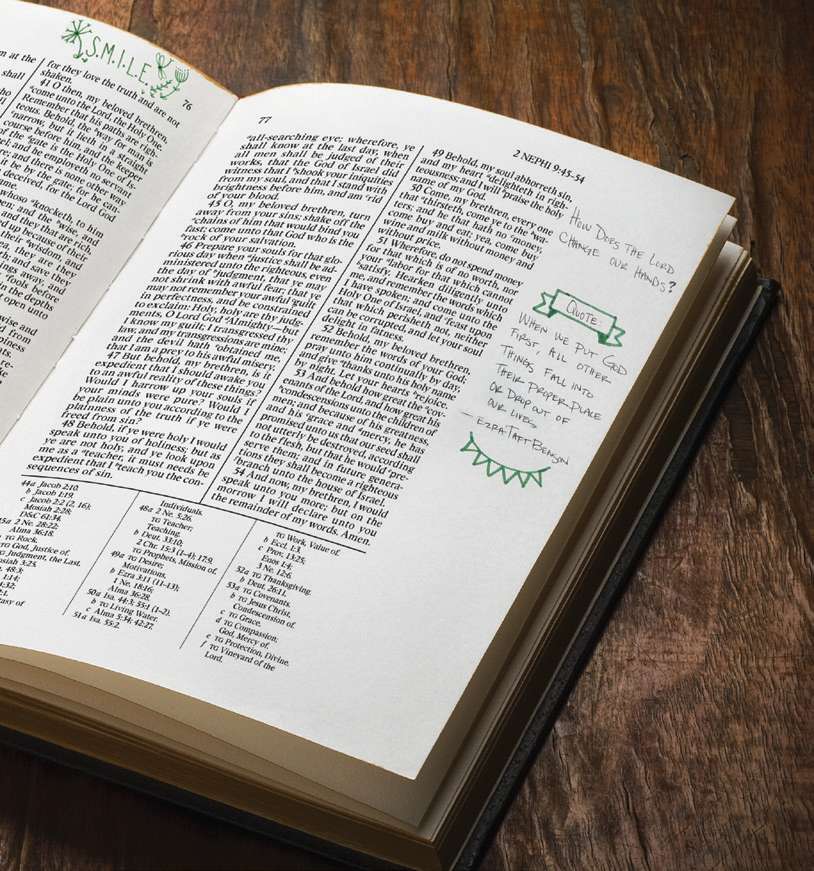 S.M.I.L.E.
76
m at the
shall
for they love the truth and are not
shaken.
41 O then, my beloved brethren,
ᵃcome unto the Lord, the Holy One.
Remember that his paths are righ-
teous. Behold, the ᵇway for man is
ᶜnarrow, but it lieth in a straight
course before him, and the keeper
of the ᵈgate is the Holy One of Is-
rael; and he employeth no servant
there; and there is none other way
save it be by the gate; for he can-
not be deceived, for the Lord God
is his name.
whoso ᵃknocketh, to him
and the ᵇwise, and
and they that are rich,
their ᶜwisdom, and
yea, they are they
save they
fools before
the depths
77
2 NEPHI 9:45–54
ᵃall-searching eye; wherefore, ye
shall know at the last day, when
all men shall be judged of their
works, that the God of Israel did
witness that I ᵇshook your iniquities
from my soul, and that I stand with
brightness before him, and am ᶜrid
of your blood.
45 O, my beloved brethren, turn
away from your sins; shake off the
ᵃchains of him that would bind you
fast; come unto that God who is the
ᵇrock of your salvation.
46 Prepare your souls for that glo-
rious day when ᵃjustice shall be ad-
ministered unto the righteous, even
the day of ᵇjudgment, that ye may
not shrink with awful fear; that ye
may not remember your awful ᶜguilt
in perfectness, and be constrained
to exclaim: Holy, holy are thy judg-
ments, O Lord God ᵈAlmighty—but
I know my guilt; I transgressed thy
law, and my transgressions are mine;
and the devil hath ᵉobtained me,
that I am a prey to his awful misery.
47 But behold, my brethren, is it
expedient that I should awake you
to an awful reality of these things?
Would I harrow up your souls if
your minds were pure? Would I
be plain unto you according to the
plainness of the truth if ye were
freed from sin?
48 Behold, if ye were holy I would
speak unto you of holiness; but as
ye are not holy, and ye look upon
me as a ᵃteacher, it must needs be
expedient that I ᵇteach you the con-
sequences of sin.
49 Behold, my soul abhorreth sin,
and my heart ᵃdelighteth in righ-
teousness; and I will ᵇpraise the holy
name of my God.
50 Come, my brethren, every one
that ᵃthirsteth, come ye to the ᵇwa-
ters; and he that hath no money,
come buy and eat; yea, come buy
wine and milk without money and
without price.
51 Wherefore, do not spend money
for that which is of no worth, nor
your ᵃlabor for that which cannot
ᵇsatisfy. Hearken diligently unto
me, and remember the words which
I have spoken; and come unto the
Holy One of Israel, and ᶜfeast upon
that which perisheth not, neither
can be corrupted, and let your soul
delight in fatness.
52 Behold, my beloved brethren,
remember the words of your God;
pray unto him continually by day,
and give ᵃthanks unto his holy name
by night. Let your hearts ᵇrejoice.
53 And behold how great the ᵃcov-
enants of the Lord, and how great his
ᵇcondescensions unto the children of
men; and because of his greatness,
and his ᶜgrace and ᵈmercy, he has
promised unto us that our seed shall
not utterly be destroyed, according
to the flesh, but that he would ᵉpre-
serve them; and in future genera-
tions they shall become a righteous
branch unto the house of Israel.
54 And now, my brethren, I would
speak unto you more; but on the
morrow I will declare unto you
the remainder of my words. Amen.
How Does the Lord
change our hands?
Quote
When we put God
first, all other
things fall into
their proper place
or drop out of
our lives
— Ezra Taft Benson
44a Jacob 2:10.
b Jacob 1:19.
c Jacob 2:2 (2, 16);
Mosiah 2:28;
D&C 61:34.
45a 2 Ne. 28:22;
Alma 36:18.
b TG Rock.
TG God, Justice of.
TG Judgment, the Last.
Individuals.
48a 2 Ne. 5:26.
TG Teacher;
Teaching.
b Deut. 33:10;
2 Chr. 15:3 (1–4); 17:9.
TG Prophets, Mission of.
49a TG Desire;
Motivations.
b Ezra 3:11 (11–13);
1 Ne. 18:16;
Alma 36:28.
50a Isa. 44:3; 55:1 (1–2).
b TG Living Water.
c Alma 5:34; 42:27.
51a Isa. 55:2.
TG Work, Value of.
b Eccl. 1:3.
c Prov. 13:25;
Enos 1:4;
3 Ne. 12:6.
52a TG Thanksgiving.
b Deut. 26:11.
53a TG Covenants.
b TG Jesus Christ,
Condescension of.
c TG Grace.
d TG Compassion;
God, Mercy of.
e TG Protection, Divine.
f TG Vineyard of the
Lord.